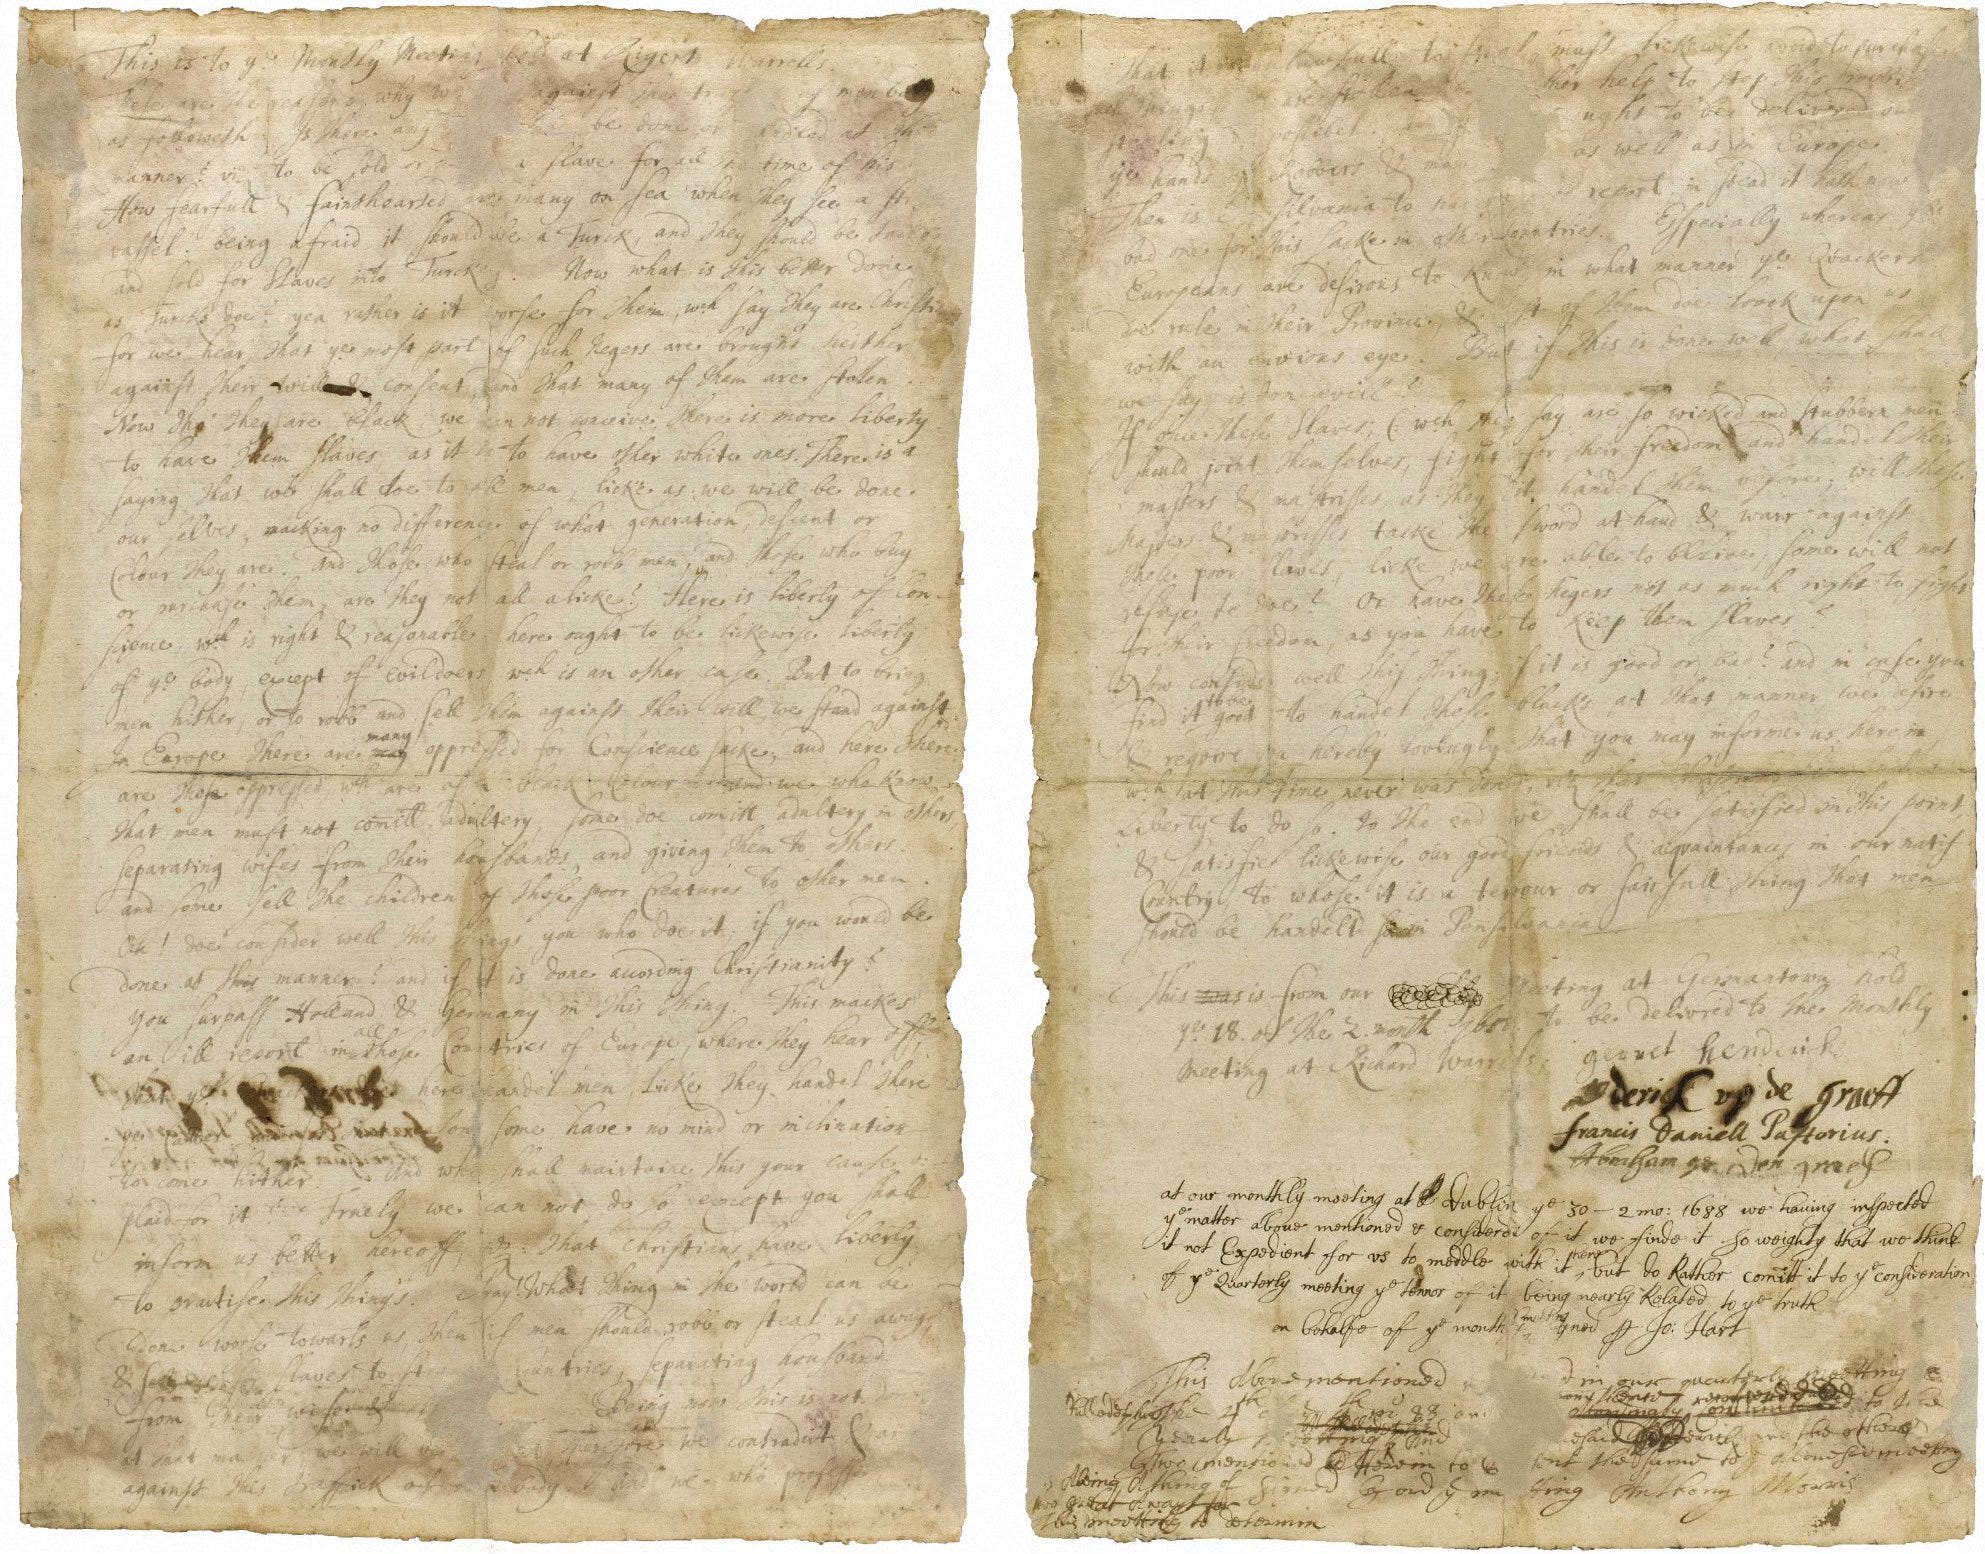 This is to ye Monthly Meeting held at Rigert Warrells.
These are the reasons why we against the traffick men body
as followeth: Is there any be done or handled at this
manner? viz to be sold or a slave for all the time of his
How fearfull & fainthearted are many on sea when they see a
vassel. being afraid it should be a Turck, and they should be
and sold for Slaves into Turckey. Now what is this better done
as Turcks doe? yea rather is it worse for them, wch say they are Christians
for we hear, that ye most part of such Negers are brought heither
against their will & consent, and that many of them are stollen.
Now tho' they are black, we can not conceive there is more liberty
to have them slaves, as it is to have other white ones. There is a
saying, that we shall doe to all men, licke as we will be done
our selves; macking no difference of what generation, descent or
Colour they are. and those who steal or robb men, and those who buy
or purchase them, are they not all alicke? Here is liberty of Con-
science, wch is right & reasonable; here ought to be lickewise liberty
of ye body, except of evildoers, wch is an other case. But to bring
men hither, or to robb and sell them against their will, we stand against.
In Europe there are many oppressed for Conscience sacke; and here there
are those oppressed wch are of a black Colour. and we, who know
that men must not comitt adultery, some doe comitt adultery in others,
separating wifes from their housbands, and giving them to others.
and some sell the children of those poor Creatures to other men.
Oh! doe consider well this things, you who doe it; if you would be
done at this manner? and if it is done according Christianity?
you surpass Holland & Germany in this thing. This mackes
an ill report in all those Countries of Europe, where they hear off,
that ye here handel men, licke they handel there
ye son some have no mind or inclination
to come hither. And who shall maintaine this your cause or
plaid for it? Truely we can not do so except you shall
inform us better hereoff, viz: that christians have liberty
to practise this things. Pray! What thing in the world can be
done worse towarts us, then if men should robb or steal us away,
& slaves to countries, separating housband
from their wife & Being now this is not done
at that manner we will be therefore we contradict & are
against this traffick of men body. And we who profess
that it is lawfull to steal, must lickewise avoid to purchase
such things are stollen help to stop this
possibel. ought to be delivered out
ye hands of Robbers & as well as in Europe.
Then is Pensilvania to have report, in stead it hath now
bad one for this sacke in other Countries. Especially whereas ye
Europeans are desirous to know in what manner ye Quackers
doe rule in their Province, & most of them doe loock upon us
with an envious eye. But if this is done well, what shall
we say, is don evill?
If once these slaves, (: wch they say are so wicked and stubbern men:
should joint themselves, fight for their freedom and handel their
masters & mastrisses as they did handel them before; will these
masters & mastrisses tacke the sword at hand & warr against
these poor slaves, licke we are able to believe, some will not
refuse to doe? Or have these Negers not as much right to fight
for their freedom, as you have to keep them slaves?
Now consider well this thing, if it is good or bad? and in case you
find it to be good to handel these blacks at that manner, we desire
& require you hereby lovingly, that you may informe us herein,
wch at this time never was done, viz that
Liberty to do so. to the end we shall be satisfied in this point,
& satisfie lickewise our good friends & acquaintances in our natif
Country, to whose it is a terrour or fairfull thing that men
should be handeld so in Pensilvania
This was is from our Meeting at Germantown hold
ye 18. of the 2. month 1688. to be delivred to the Monthly
Meeting at Richard Warrels.
gerret hendericks
derick op de graeff
Francis Daniell Pastorius.
Abraham op Den graef
at our monthly meeting at Dublin ye 30 – 2 mo: 1688 we having inspected
ye matter above mentioned & considered of it we finde it so weighty that we think
it not Expedient for us to meddle with it here, but do Rather comitt it to ye consideration
of ye Quarterly meeting ye tennor of it being nearly Related to ye truth
on behalfe of ye monthly meeting signed Jo: Hart
This Abovementioned in our quarterly meeting
the 4th of 88
yearly meeting
above mentioned the same to meeting
being a thing of Signed by order of meeting Anthony Morris
two great a wayt for
this meetting to determin